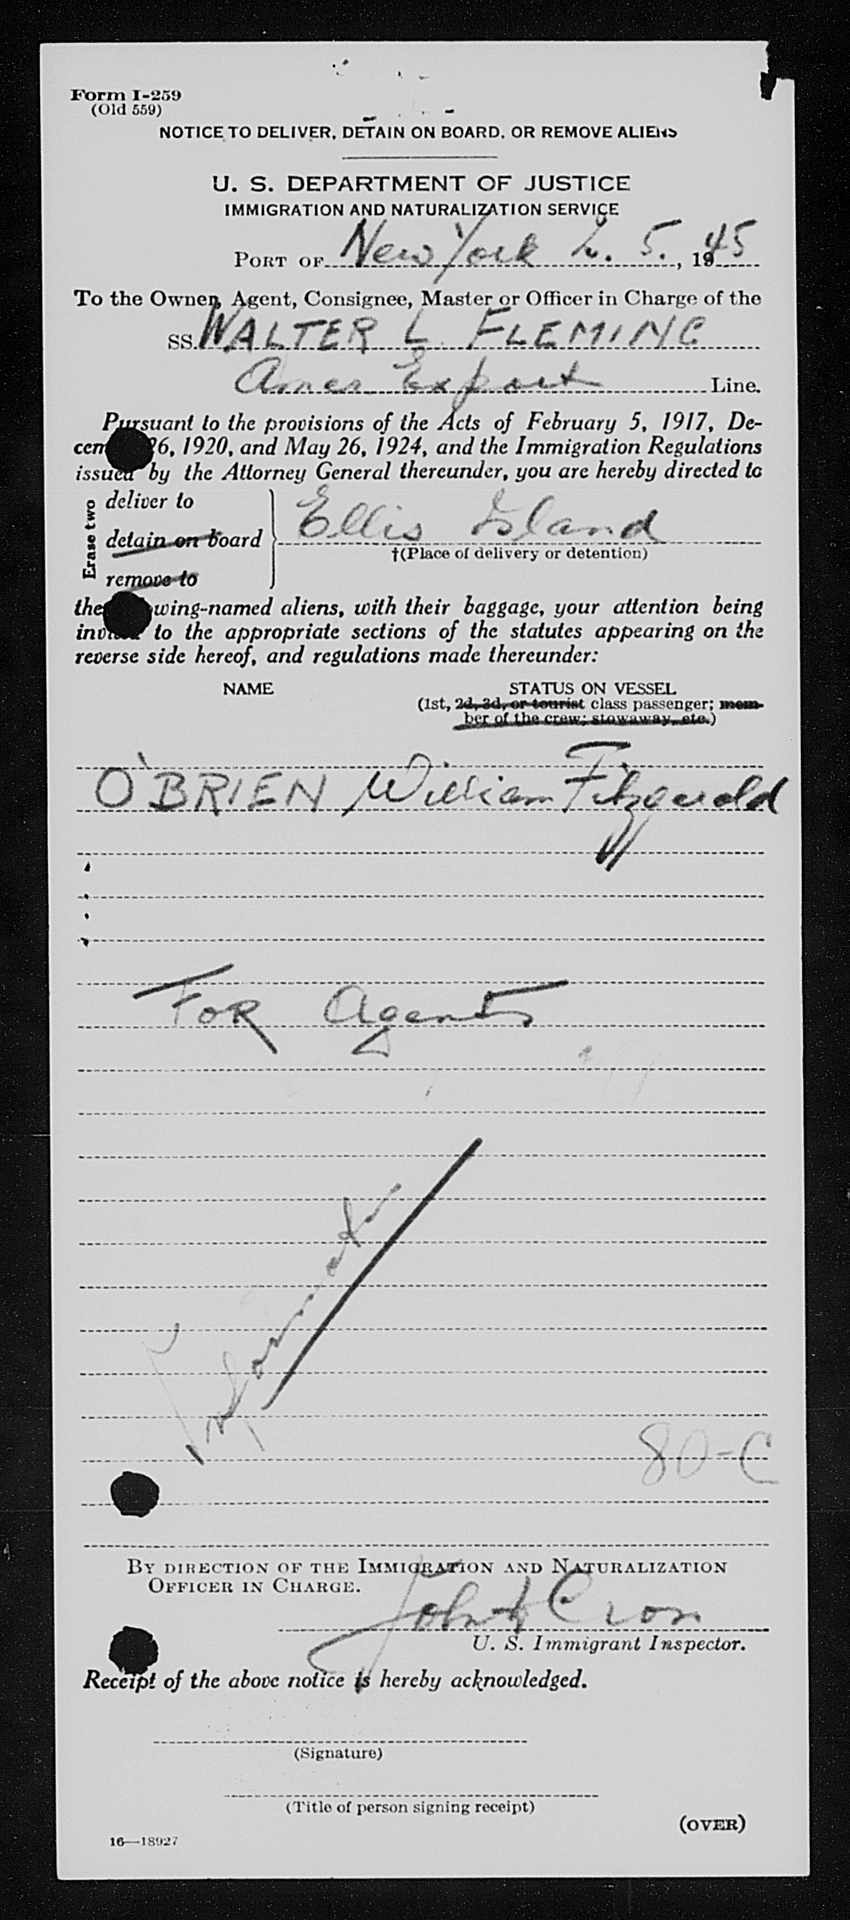 Form I-259
(Old 559)
NOTICE TO DELIVER, DETAIN ON BOARD, OR REMOVE ALIENS
U. S. DEPARTMENT OF JUSTICE
IMMIGRATION AND NATURALIZATION SERVICE
PORT OF New York 2. 5., 1945
To the Owner, Agent, Consignee, Master or Officer in Charge of the
SS. WALTER L FLEMING
Amer Export Line.
Pursuant to the provisions of the Acts of February 5, 1917, De-
cem 26, 1920, and May 26, 1924, and the Immigration Regulations
issued by the Attorney General thereunder, you are hereby directed to
Erase two
deliver to
detain on board Ellis Island
†(Place of delivery or detention)
remove to
the wing-named aliens, with their baggage, your attention being
invited to the appropriate sections of the statutes appearing on the
reverse side hereof, and regulations made thereunder:
NAME STATUS ON VESSEL
(1st, 2d, 3d, or tourist class passenger; mem-
ber of the crew; stowaway, etc.)
O'BRIEN William Fitzgerald
FOR Agents
80-C
BY DIRECTION OF THE IMMIGRATION AND NATURALIZATION
OFFICER IN CHARGE.
John Cron
U. S. Immigrant Inspector.
Receipt of the above notice is hereby acknowledged.
(Signature)
(Title of person signing receipt)
(OVER)
16—18927